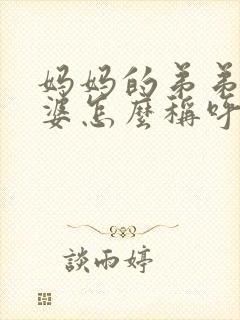 妈妈的弟弟
婆怎麼稱呼
談雨婷